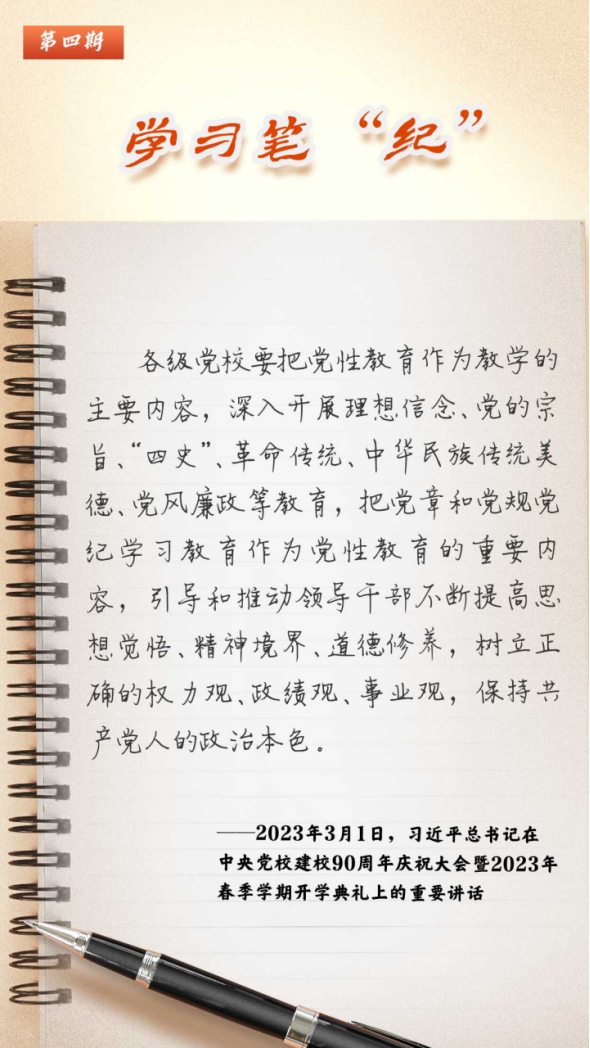 第四期
学习笔“纪”
各级党校要把党性教育作为教学的
主要内容，深入开展理想信念、党的宗
旨、“四史”、革命传统、中华民族传统美
德、党风廉政等教育，把党章和党规党
纪学习教育作为党性教育的重要内
容，引导和推动领导干部不断提高思
想觉悟、精神境界、道德修养，树立正
确的权力观、政绩观、事业观，保持共
产党人的政治本色。
——2023年3月1日，习近平总书记在
中央党校建校90周年庆祝大会暨2023年
春季学期开学典礼上的重要讲话